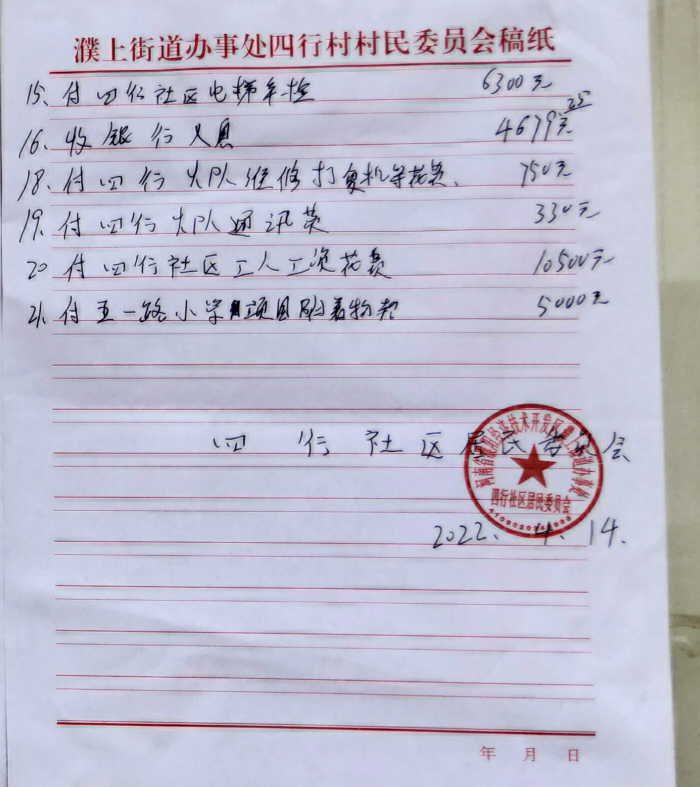 濮上街道办事处四行村村民委员会稿纸
15. 付四行社区电梯年检 6300元
16. 收银行入息 4679元25
18. 付四行大队维修打复机等花费、 750元
19. 付四行大队通讯费 330元
20 付四行社区工人工资花费 10500元
21. 付五一路小学项目附着物款 5000元
四行社区居民委员会
四行社区居民委员会
2022. 4. 14.
年 月 日